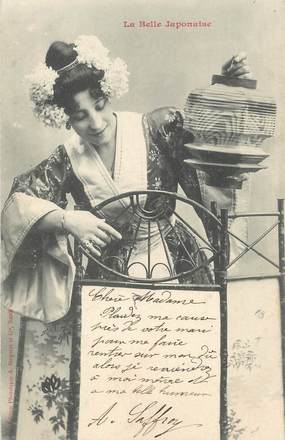 La Belle Japonaise
Chère Madame
Plaidez ma cause
près de votre mari
pour me faire
rentrer sur mon dû
alors je reviendrai
à moi même et
à ma belle humeur
A. Saffroy